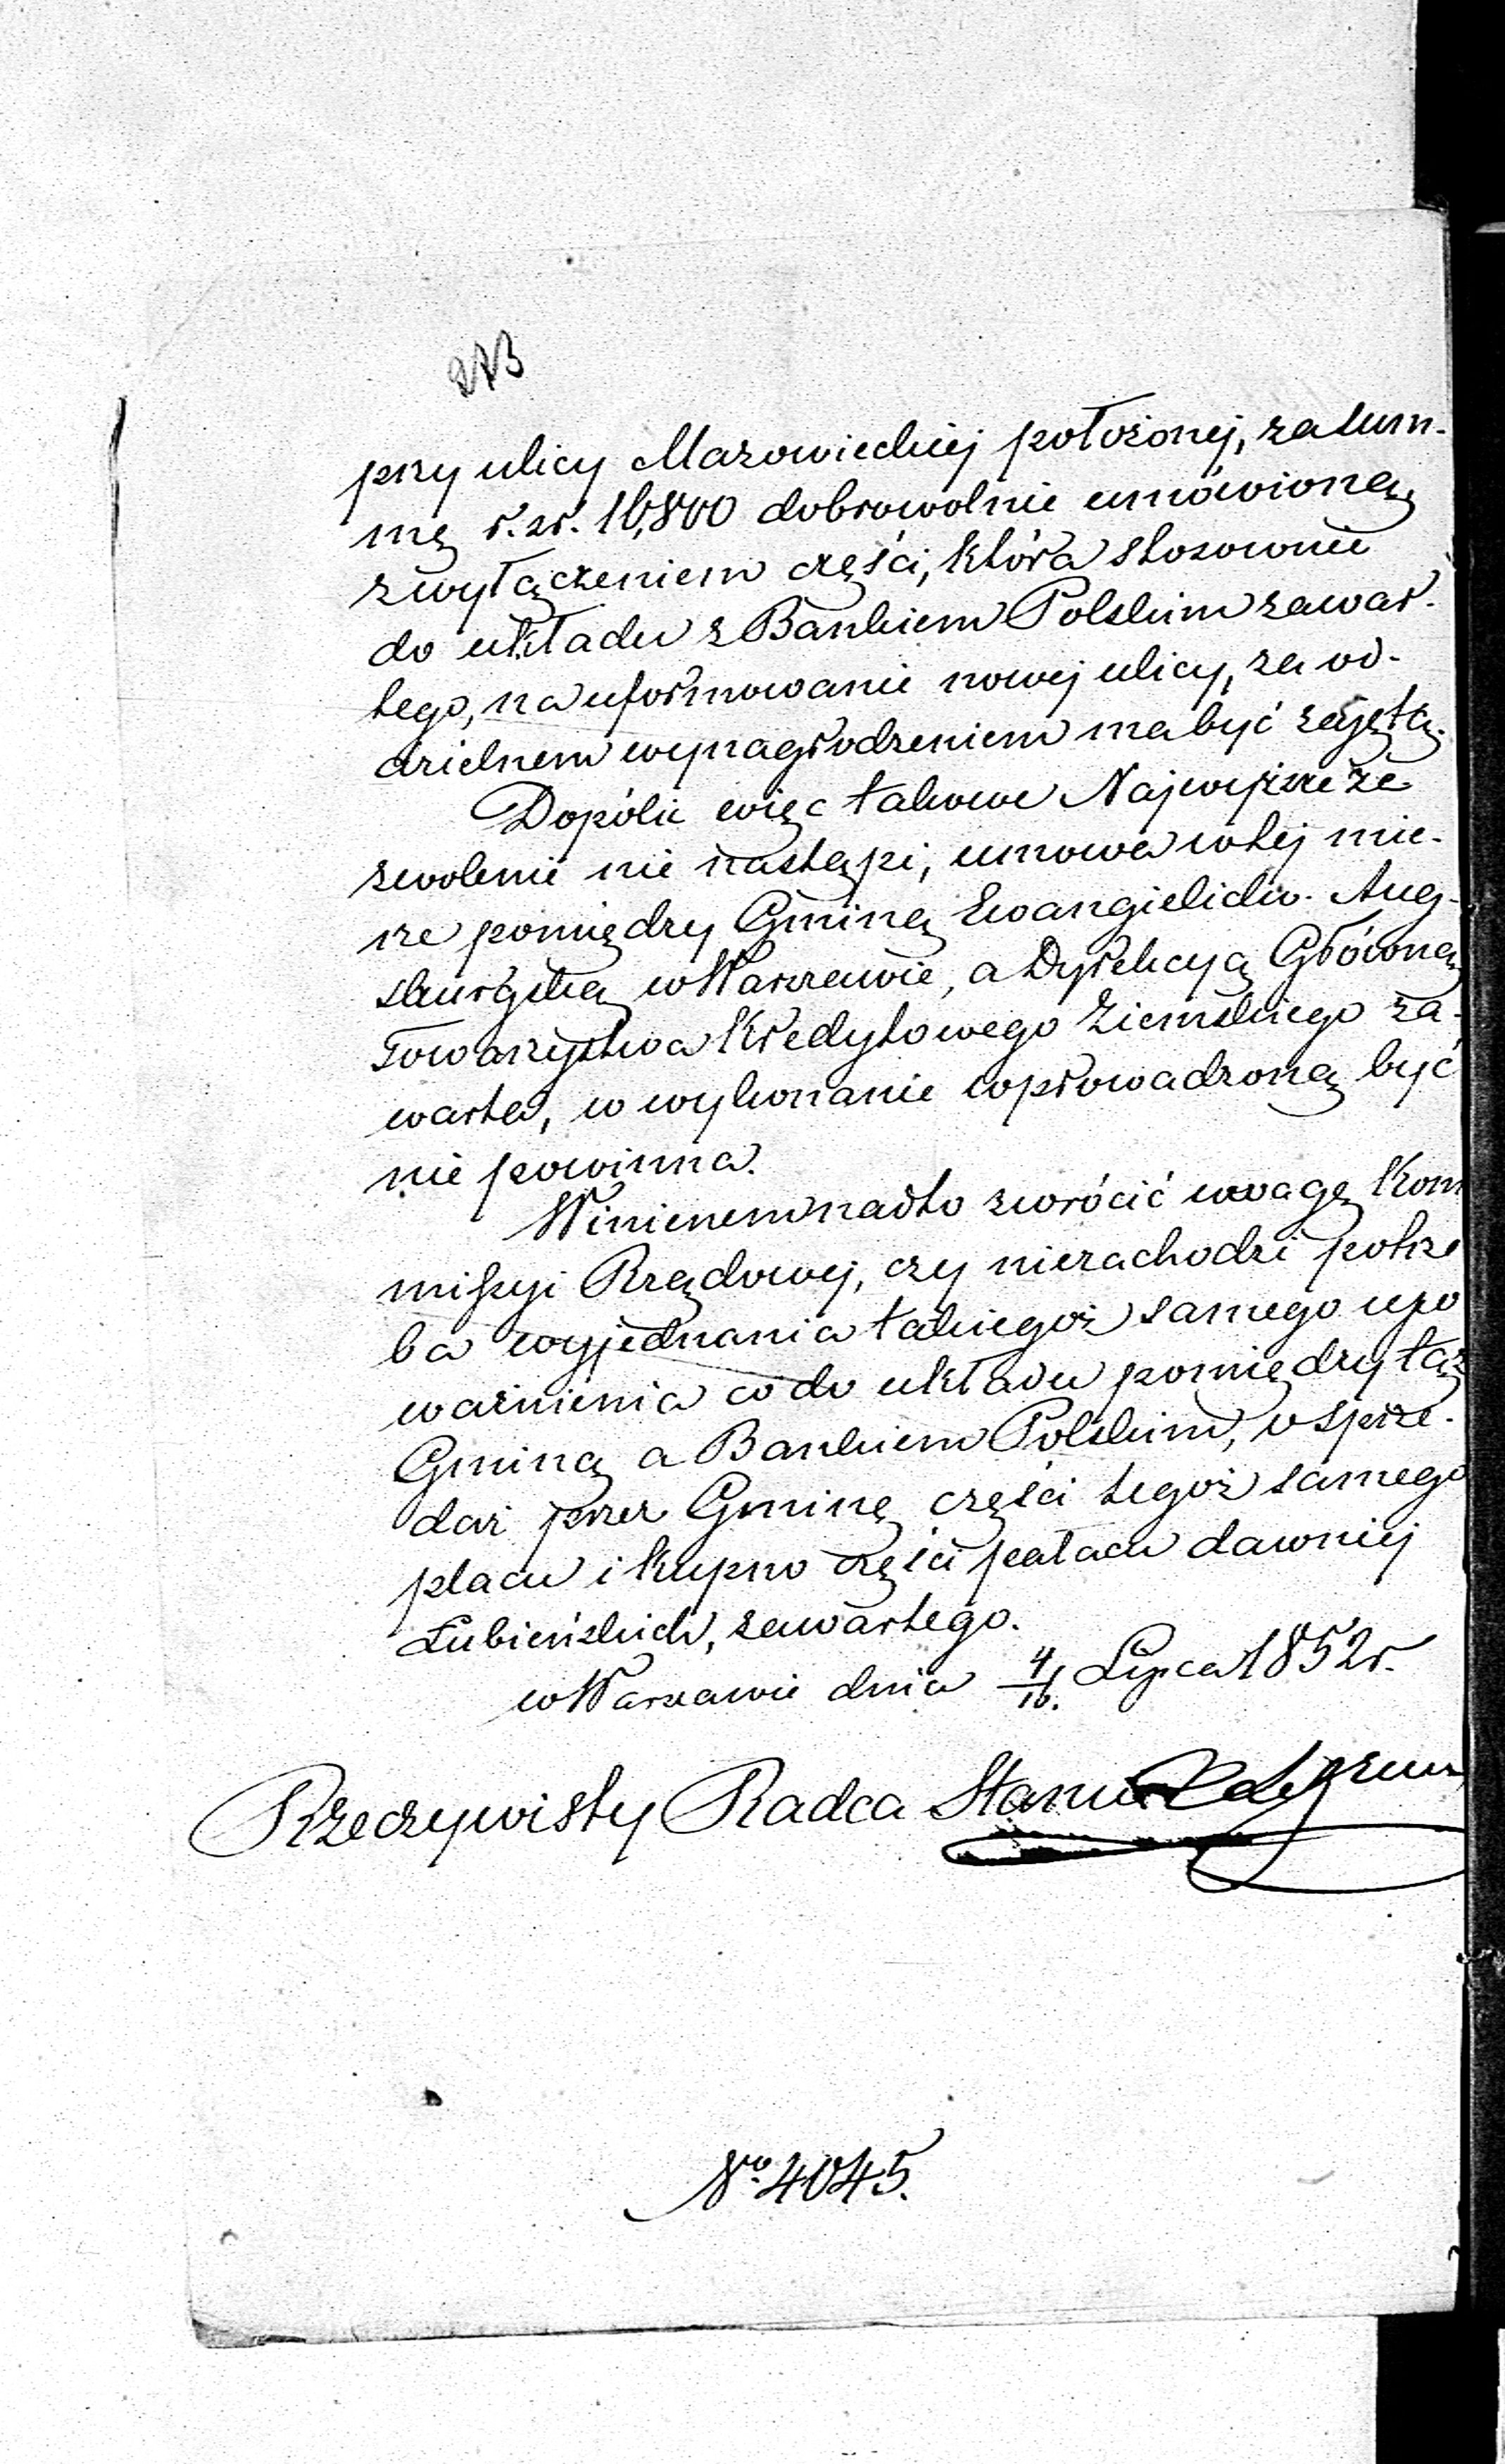 273
przy ulicy Mazowieckiej położonej, za sum-
mę r. sr. 16,800 dobrowolnie umówioną
z wyłączeniem części, która stosownie
do układu z Bankiem Polskim zawar-
tego, na uformowanie nowej ulicy, za od-
dzielnem wynagrodzeniem ma być zajętą.
Dopóki więc takowe Najwyższe ze
zwolenie nie nastąpi, umowa w tej mie-
rze pomiędzy Gminą Ewangielicko-Aug-
sburgską w Warszawie, a Dyrekcyą Główną
Towarzystwa Kredytowego Ziemskiego za-
warta, w wykonanie wprowadzoną być
nie powinna.
Winienem nadto zwrócić uwagę Kom
missyi Rządowej, czy niezachodzi potrze
ba wyjednania takiegoż samego upo
ważnienia co do układu pomiędzy tąż
Gminą a Bankiem Polskim, o sprze-
daż przez Gminę części tegoż samego
placu i kupno części pałacu dawniej
Łubieńskich, zawartego.
w Warszawie dnia 4/16. Lipca 1852 r.
Rzeczywisty Radca Stanu
No. 4045.